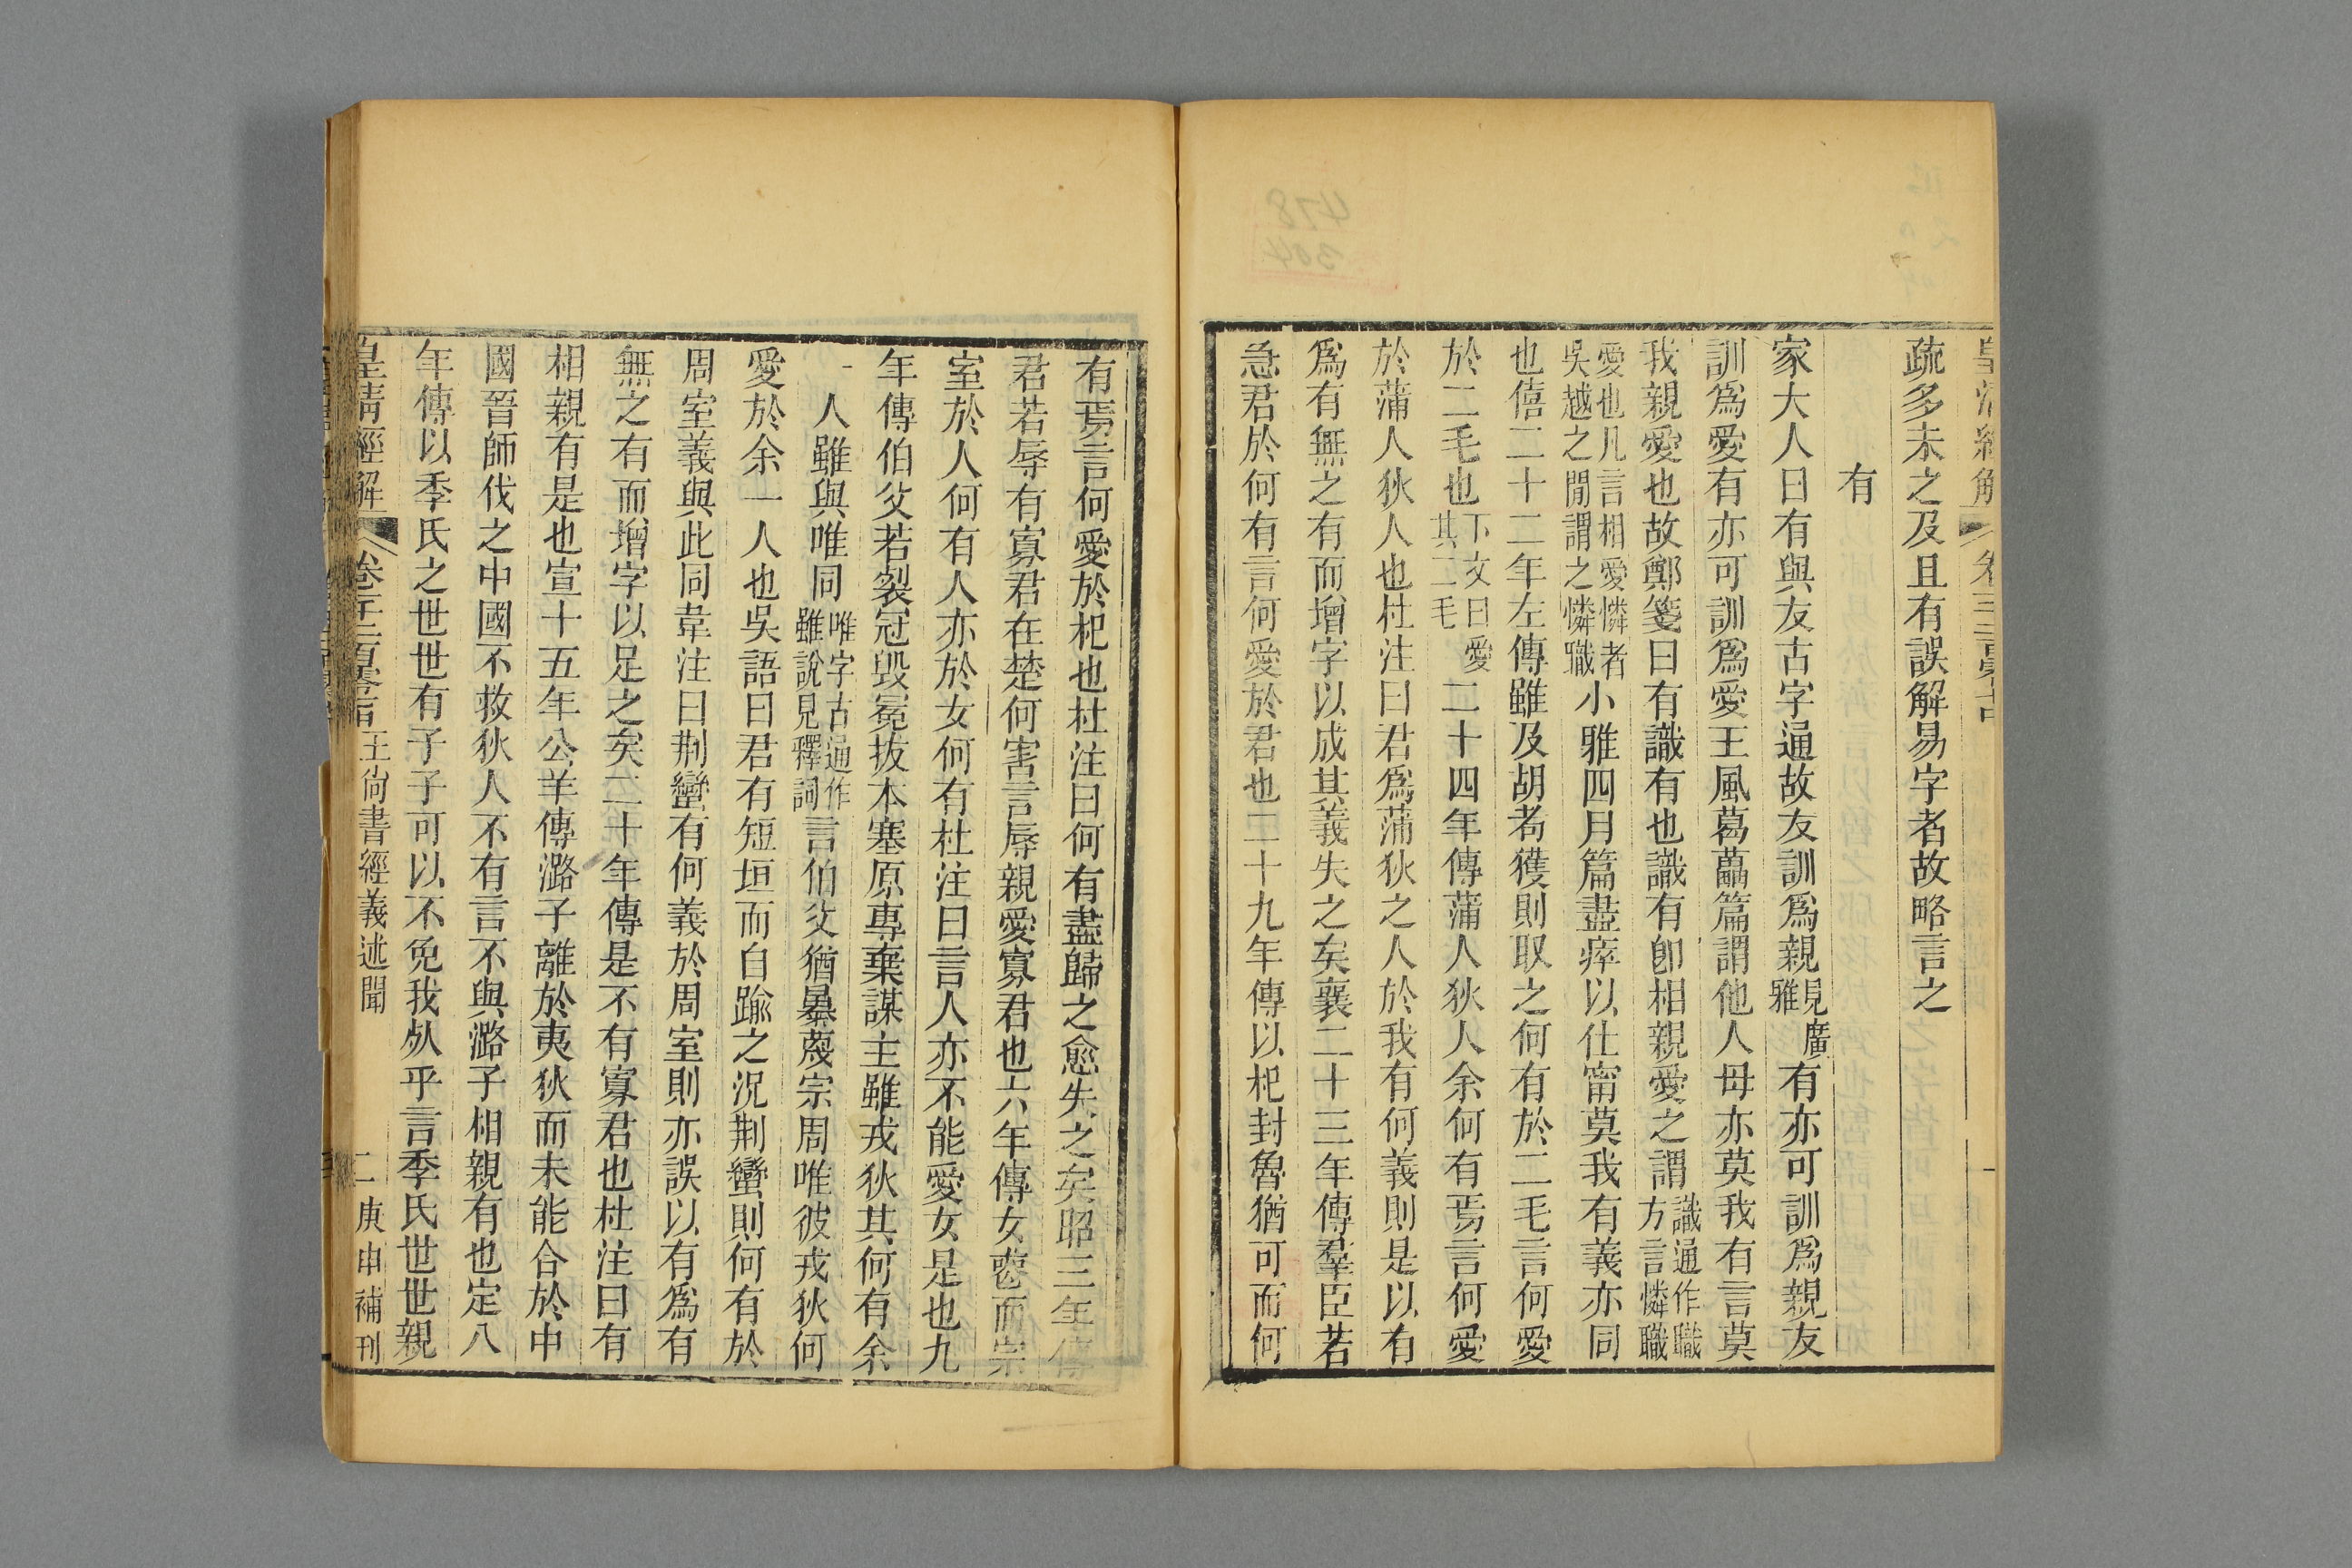 疏多未之及且有誤解易字者故略言之
有
家大人曰有與友古字通故友訓爲親見廣雅有亦可訓爲親友
訓爲愛有亦可訓爲愛王風葛藟篇謂他人母亦莫我有言莫
我親愛也故鄭箋曰有識有也識有卽相親愛之謂識通作職方言憐職
愛也凡言相愛憐者吳越之閒謂之憐職小雅四月篇盡瘁以仕甯莫我有義亦同
也僖二十二年左傳雖及胡耇獲則取之何有於二毛言何愛
於二毛也下文曰愛其二毛二十四年傳蒲人狄人余何有焉言何愛
於蒲人狄人也杜注曰君爲蒲狄之人於我有何義則是以有
爲有無之有而增字以成其義失之矣襄二十三年傳羣臣若
急君於何有言何愛於君也二十九年傳以杞封魯猶可而何
有焉言何愛於杞也杜注曰何有盡歸之愈失之矣昭三年傳
君若辱有寡君在楚何害言辱親愛寡君也六年傳女喪而宗
室於人何有人亦於女何有杜注曰言人亦不能愛女是也九
年傳伯父若裂冠毀冕拔本塞原專棄謀主雖戎狄其何有余
一人雖與唯同唯字古通作雖說見釋詞言伯父猶暴蔑宗周唯彼戎狄何
愛於余一人也吳語曰君有短垣而自踰之況荆蠻則何有於
周室義與此同韋注曰荆蠻有何義於周室則亦誤以有爲有
無之有而增字以足之矣二十年傳是不有寡君也杜注曰有
相親有是也宣十五年公羊傳潞子離於夷狄而未能合於中
國晉師伐之中國不救狄人不有言不與潞子相親有也定八
年傳以季氏之世世有子子可以不免我死乎言季氏世世親
皇清經解 卷千二百零 王尙書經義述聞 二 庚申補刊